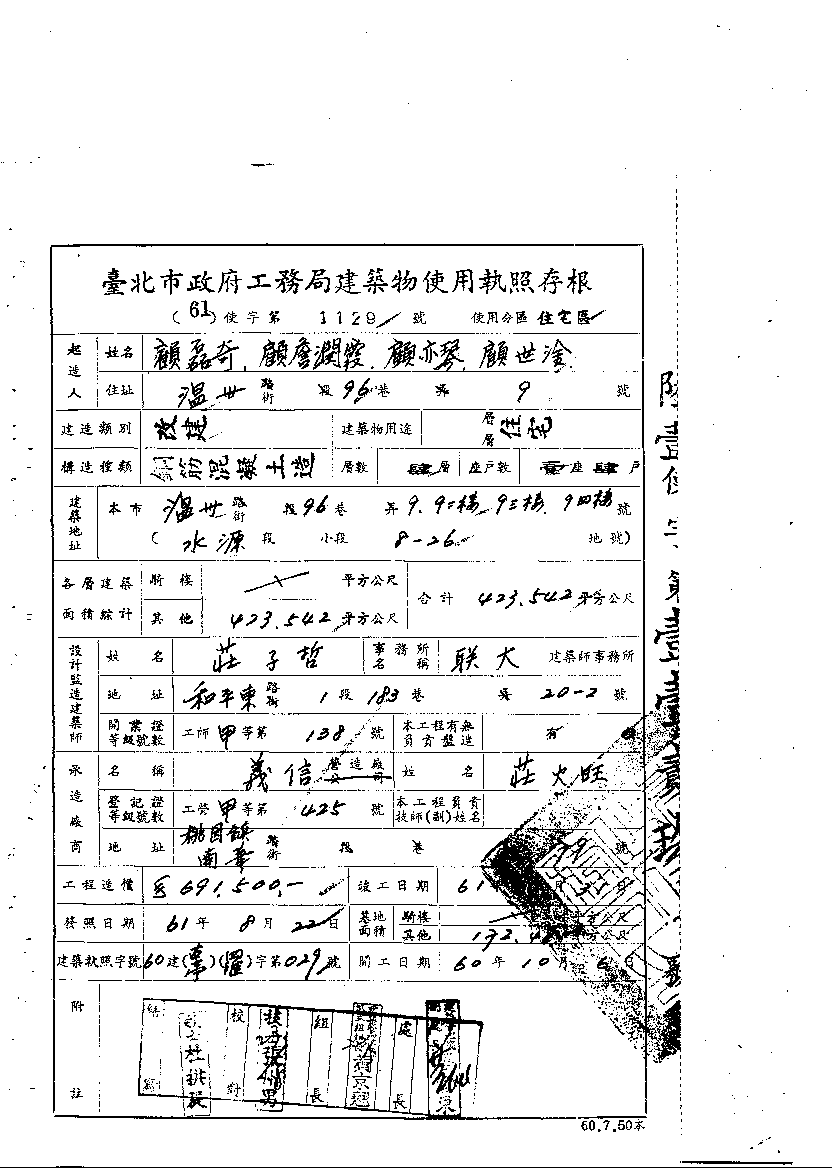 臺北市政府工務局建築物使用執照存根
(61)使字第 1129 號 使用分區 住宅區
起造人 姓名 顧磊奇、顧詹潤霞、顧亦琴、顧世淦
住址 温州 路街 段 96 巷 弄 9 號
建造類別 改建 建築物用途 層層 住宅
構造種類 鋼筋混凝土造 層數 肆層 座戶數 壹座肆戶
建築地址 本市 温州 路街 段 96 巷 弄 9、9二樓、9三樓、9四樓 號
( 水源 段 小段 8-26 地號)
各層建築面積綜計 騎樓 平方公尺 合計 423.542 平方公尺
其他 423.542 平方公尺
設計監造建築師 姓名 莊子哲 事務所名稱 联大 建築師事務所
地址 和平東 路街 1 段 183 巷 弄 20-2 號
開業證等級號數 工師 甲 等第 138 號 本工程有無負責監造 有
承造廠商 名稱 義信 營造廠 姓名 莊火旺
登記證等級號數 工營 甲 等第 425 號 本工程負責技師(副)姓名
地址 桃園鎮南華 路街 段 巷 號
工程造價 691,500.- 竣工日期 61
發照日期 61 年 8 月 22 日 基地面積 騎樓 平方公尺
其他 平方公尺
建築執照字號 60 建 字第 029 號 開工日期 60 年 10 月 6 日
附註
校對 組長 處長
60.7.50本